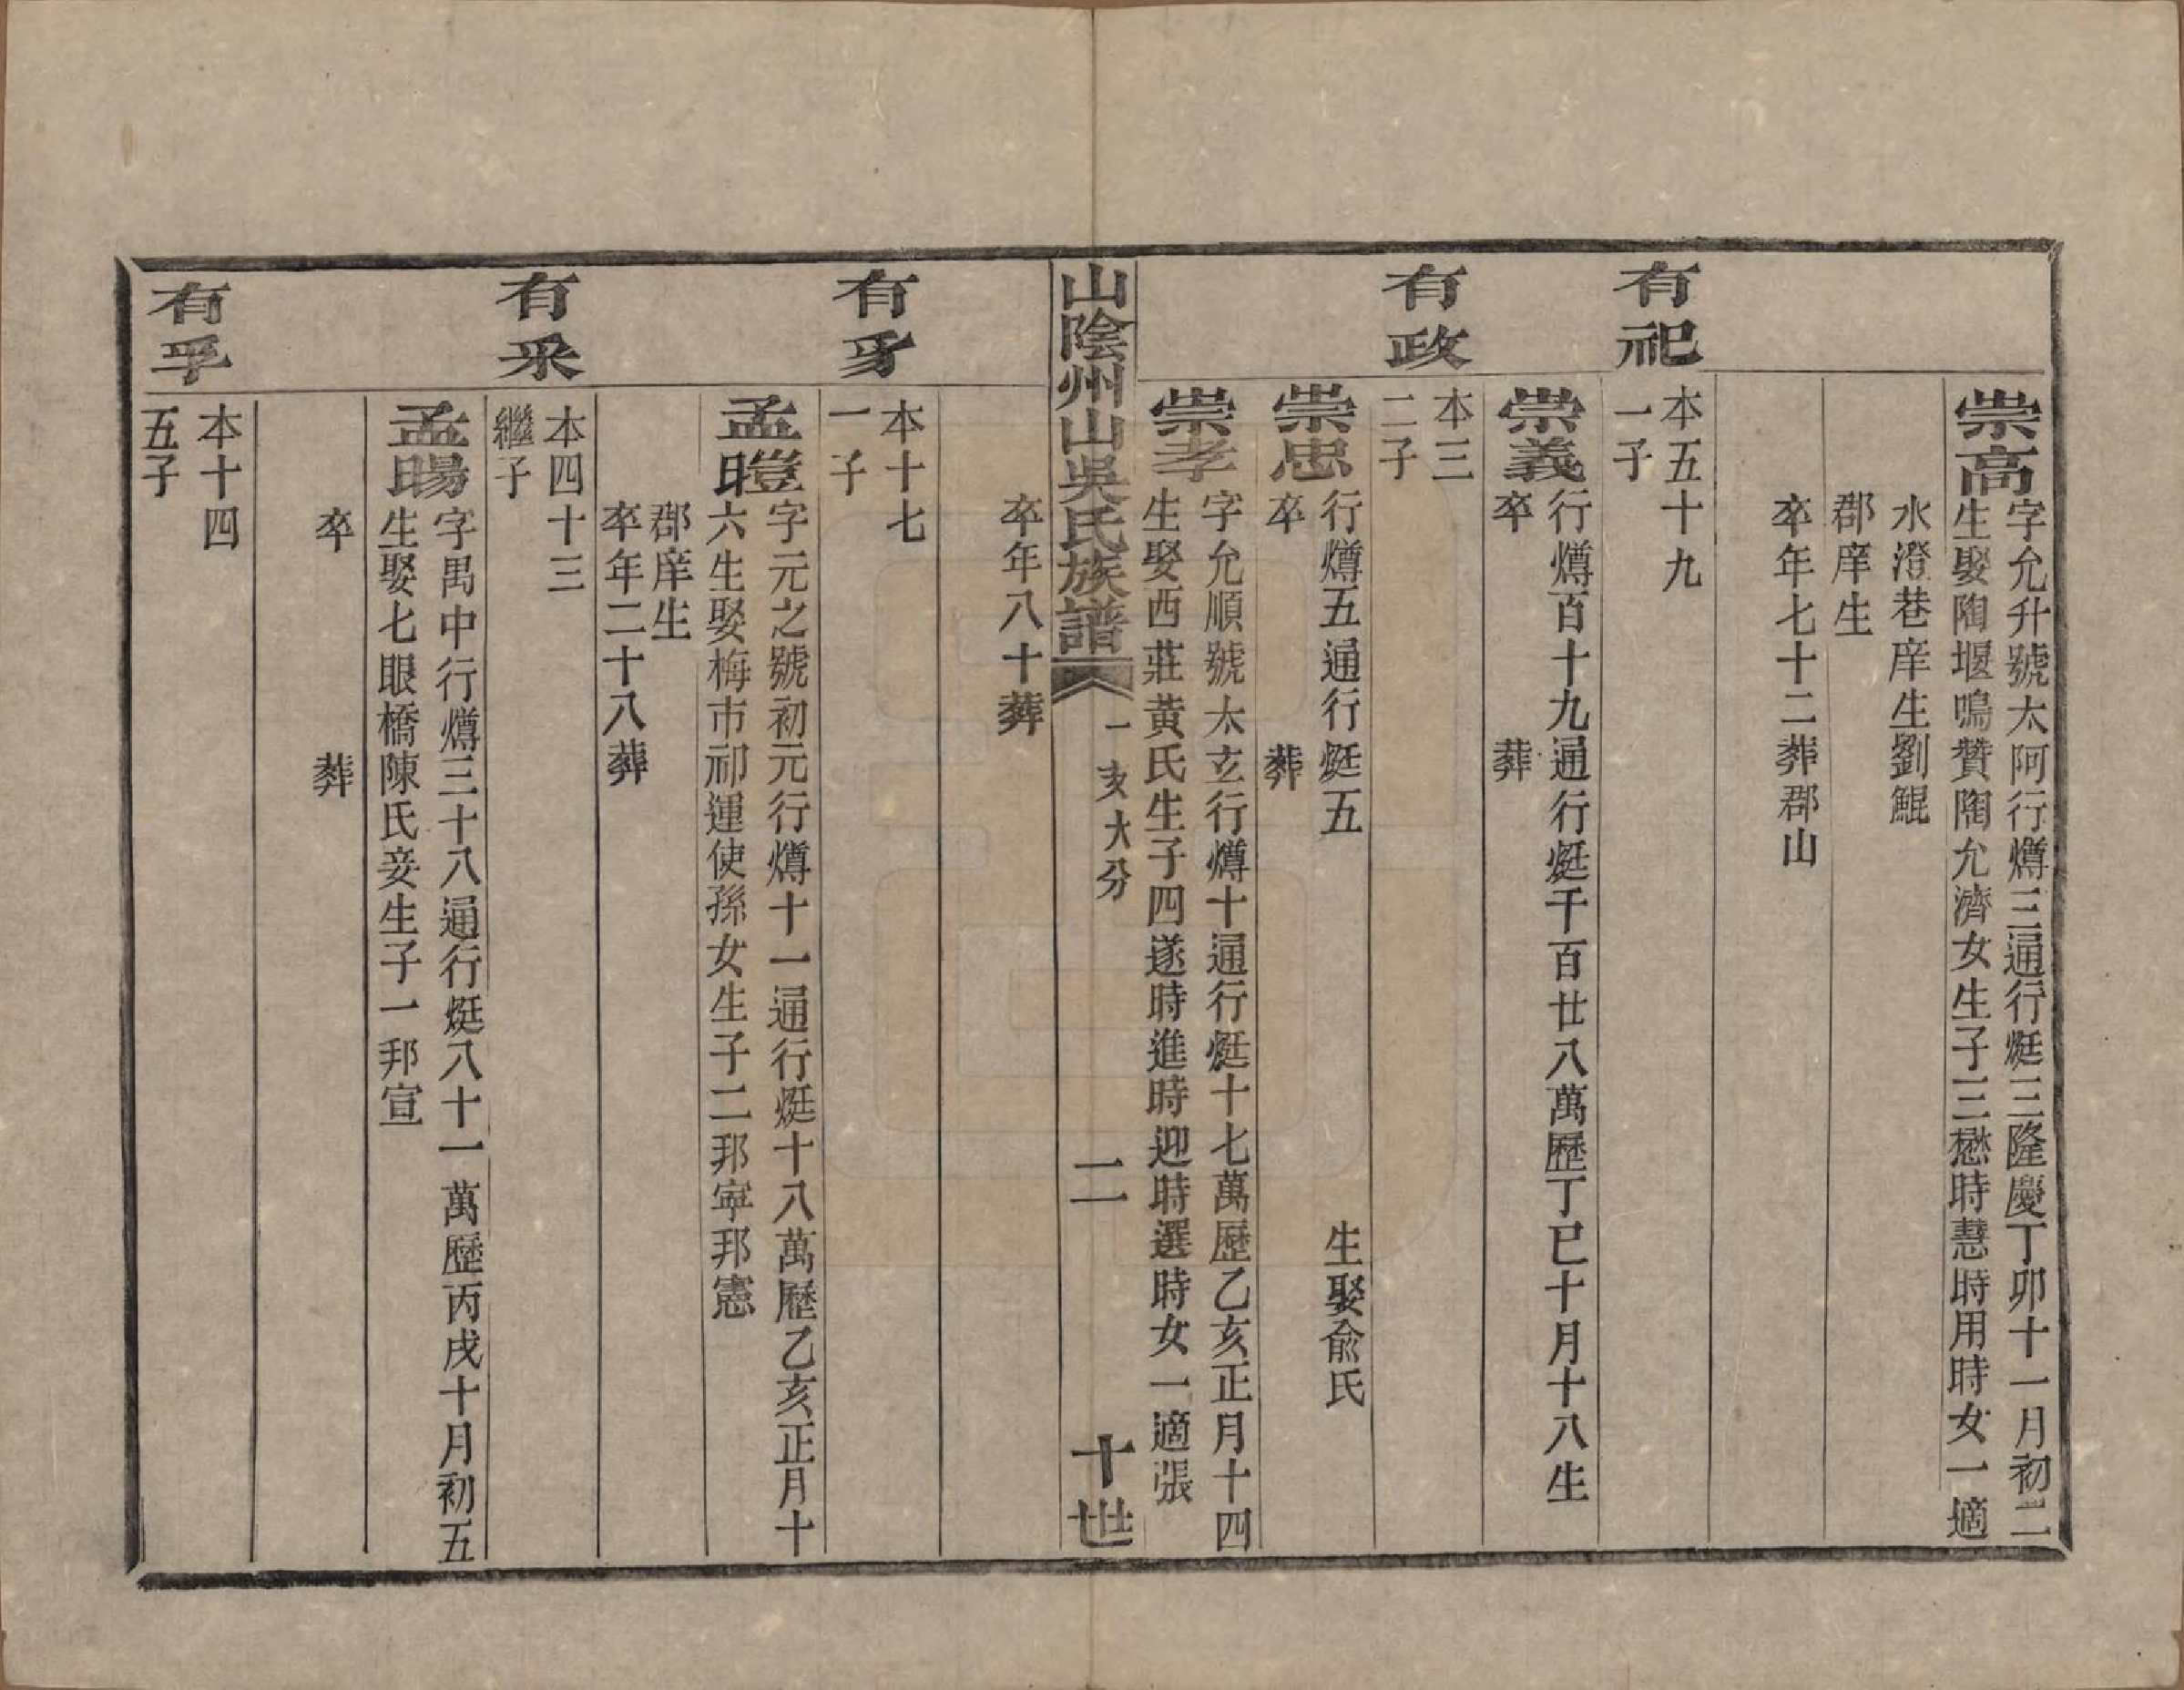 崇高
字允升號太阿行燇三通行烶三隆慶丁卯十一月初二
生娶陶堰鳴贊陶允濟女生子三懋時慧時用時女一適
水澄巷庠生劉鯤
郡庠生
卒年七十二葬郡山
有祀
本五十九
一子
崇義
行燇百十九通行烶千百廿八萬歷丁巳十月十八生
卒 葬
有政
本三
二子
崇忠
行燇五通行烶五 生娶俞氏
卒 葬
崇孝
字允順號太玄行燇十通行烶十七萬歷乙亥正月十四
生娶西莊黃氏生子四遂時進時迎時選時女一適張
山陰州山吳氏族譜 一亥大分 二 十世
卒年八十葬
有豸
本十七
一子
孟暟
字元之號初元行燇十一通行烶十八萬歷乙亥正月十
六生娶梅市祁運使孫女生子二邦寧邦憲
郡庠生
卒年二十八葬
有采
本四十三
繼子
孟暘
字禺中行燇三十八通行烶八十一萬歷丙戌十月初五
生娶七眼橋陳氏妾生子一邦宣
卒 葬
有孚
本十四
五子